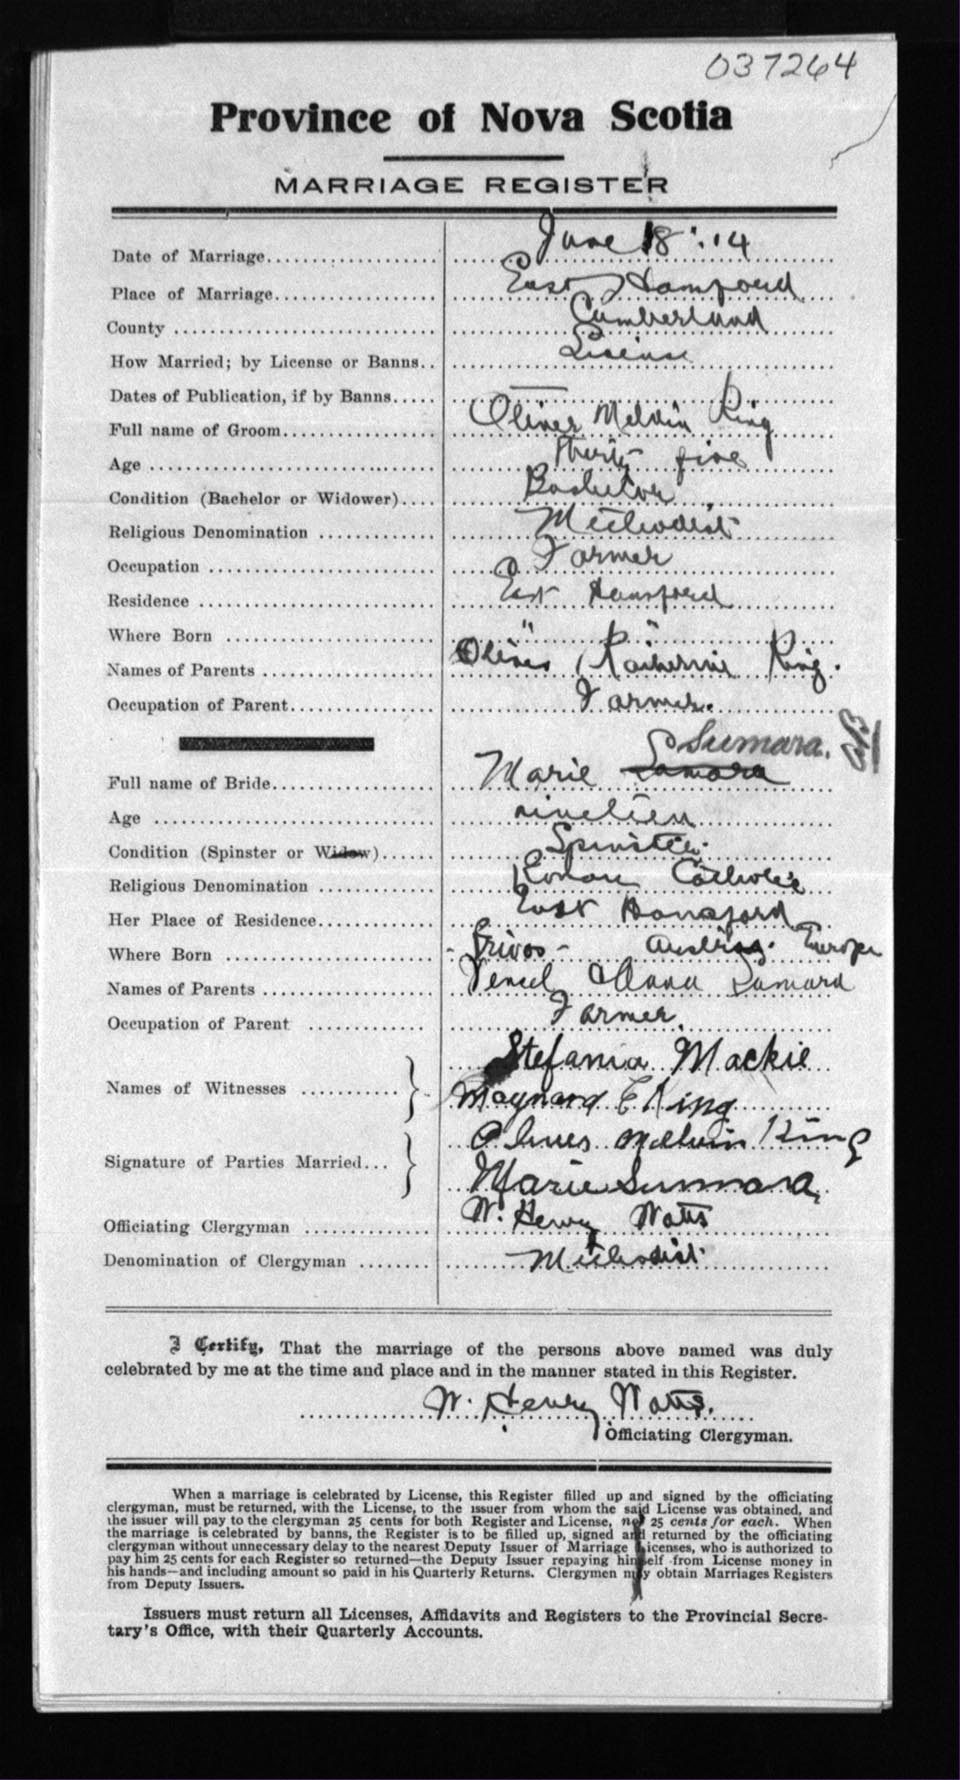 037264
Province of Nova Scotia
MARRIAGE REGISTER
Date of Marriage.................... June 18 '.14
Place of Marriage................... East Hansford
County ............................. Cumberland
How Married; by License or Banns.. License
Dates of Publication, if by Banns..... —
Full name of Groom.................. Oliver Melvin King
Age ................................ Thirty five
Condition (Bachelor or Widower).... Bachelor
Religious Denomination ............. Methodist
Occupation ......................... Farmer
Residence .......................... East Hansford
Where Born ......................... " "
Names of Parents ................... Oliver, Katherine King.
Occupation of Parent................ Farmer.
Sumara.
Full name of Bride.................. Marie Samara
Age ................................ nineteen
Condition (Spinster or Widow)...... Spinster
Religious Denomination ............. Roman Catholic
Her Place of Residence.............. East Hansford
Where Born ......................... - - Austria. Europe
Names of Parents ................... Vencel Anna
Occupation of Parent ............... Farmer.
Names of Witnesses ............ } Stefania Mackie
Maynard E King
Signature of Parties Married... } Oliver Melvin King
Marie Sumara
Officiating Clergyman .............. W. Henry Watts
Denomination of Clergyman ........ Methodist
I Certify, That the marriage of the persons above named was duly
celebrated by me at the time and place and in the manner stated in this Register.
W. Henry Watts.
Officiating Clergyman.
When a marriage is celebrated by License, this Register filled up and signed by the officiating
clergyman, must be returned, with the License, to the issuer from whom the said License was obtained, and
the issuer will pay to the clergyman 25 cents for both Register and License, not 25 cents for each. When
the marriage is celebrated by banns, the Register is to be filled up, signed and returned by the officiating
clergyman without unnecessary delay to the nearest Deputy Issuer of Marriage Licenses, who is authorized to
pay him 25 cents for each Register so returned—the Deputy Issuer repaying himself from License money in
his hands—and including amount so paid in his Quarterly Returns. Clergymen may obtain Marriages Registers
from Deputy Issuers.
Issuers must return all Licenses, Affidavits and Registers to the Provincial Secre-
tary's Office, with their Quarterly Accounts.